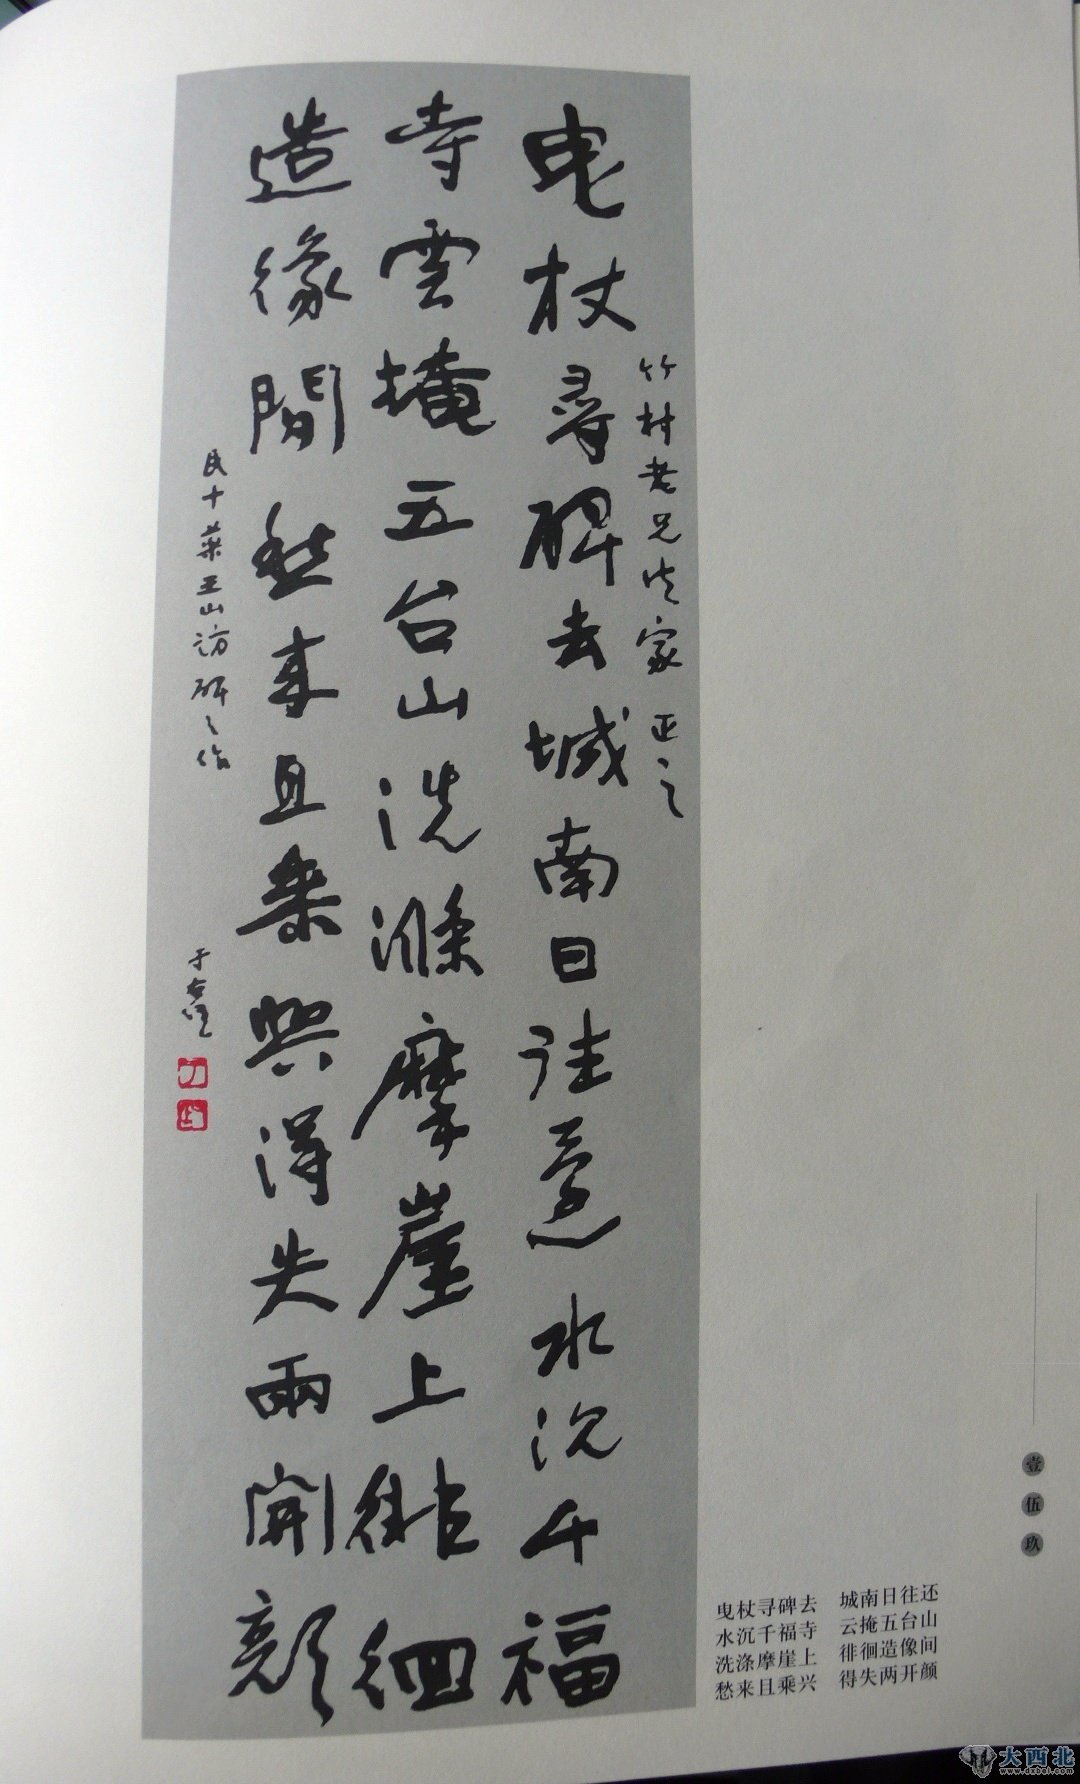 竹村老兄法家正之
曳杖尋碑去城南日往還水沉千福
寺雲掩五台山洗滌摩崖上徘徊
造像間愁来且乘興得失兩開顏
民十藥王山訪碑之作
于右任
曳杖寻碑去 城南日往还
水沉千福寺 云掩五台山
洗涤摩崖上 徘徊造像间
愁来且乘兴 得失两开颜
壹伍玖
大西北
www.dxbei.com